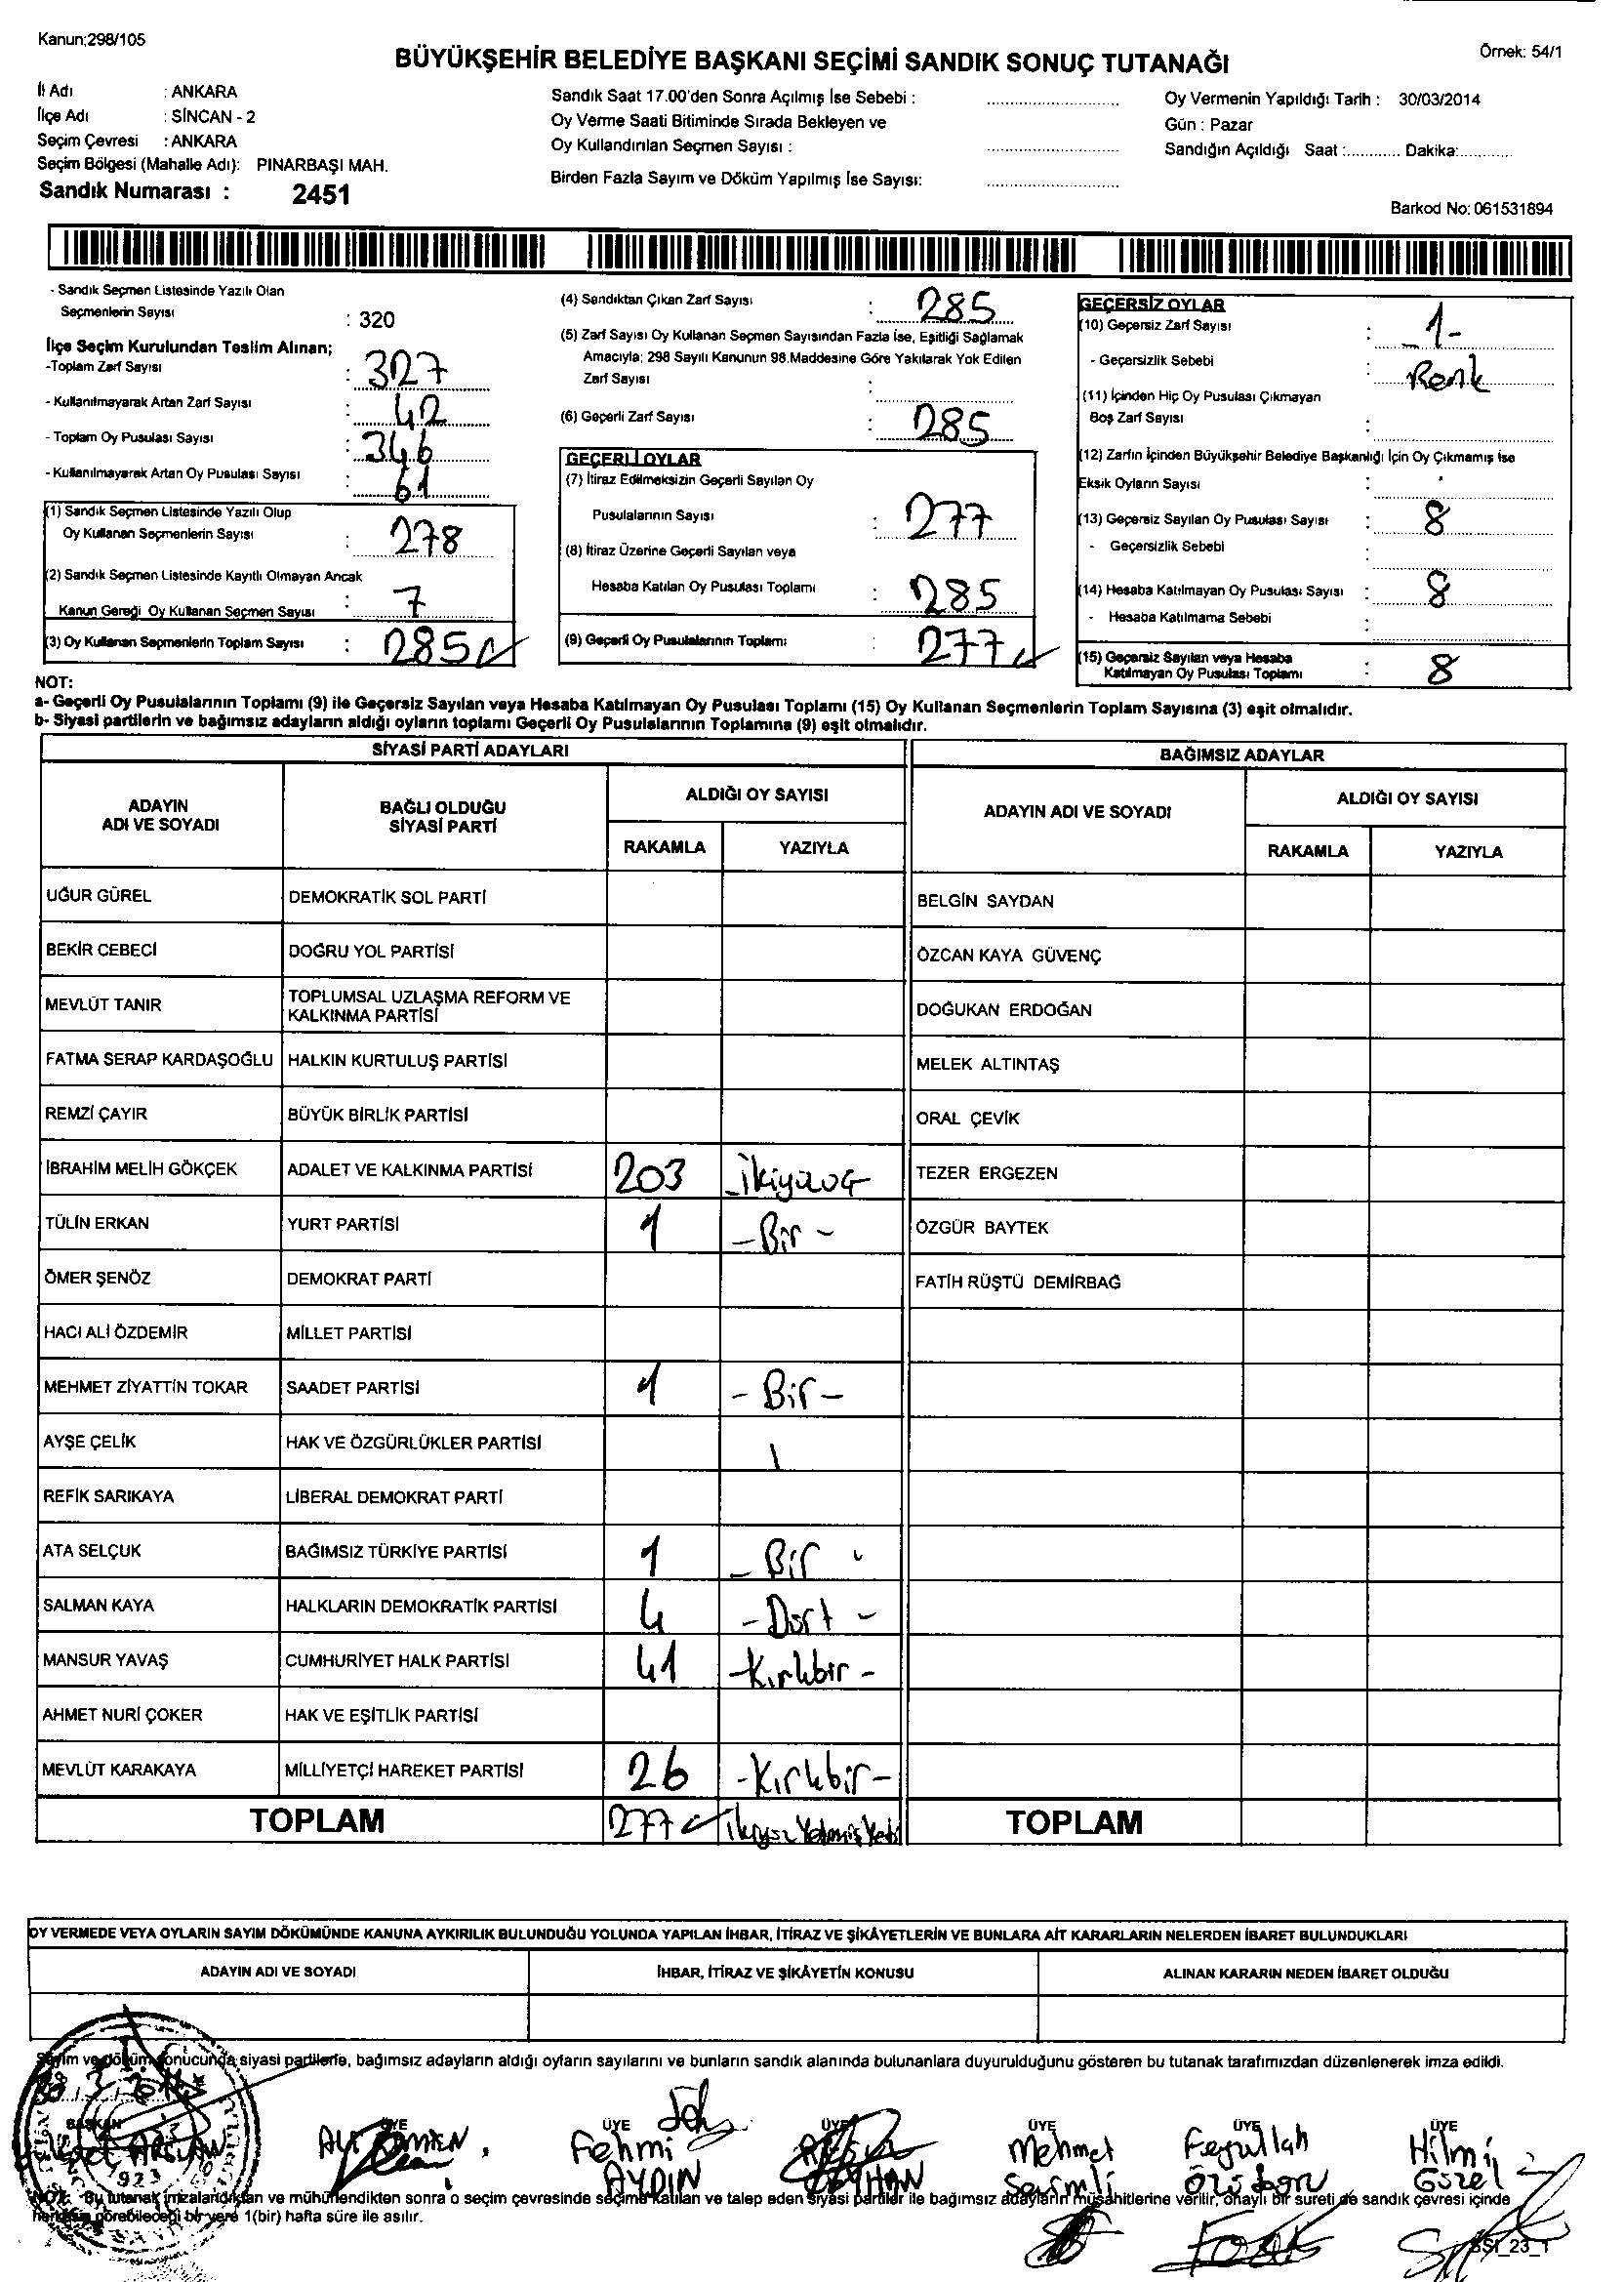 Kanun;298/105
Örnek: 54/1
BÜYÜKŞEHİR BELEDİYE BAŞKANI SEÇİMİ SANDIK SONUÇ TUTANAĞI
İl Adı : ANKARA
İlçe Adı : SİNCAN - 2
Seçim Çevresi : ANKARA
Seçim Bölgesi (Mahalle Adı): PINARBAŞI MAH.
Sandık Numarası : 2451
Sandık Saat 17.00'den Sonra Açılmış İse Sebebi :
Oy Verme Saati Bitiminde Sırada Bekleyen ve
Oy Kullandırılan Seçmen Sayısı :
Birden Fazla Sayım ve Döküm Yapılmış İse Sayısı:
Oy Vermenin Yapıldığı Tarih : 30/03/2014
Gün : Pazar
Sandığın Açıldığı Saat :............ Dakika:............
Barkod No: 061531894
- Sandık Seçmen Listesinde Yazılı Olan
Seçmenlerin Sayısı : 320
İlçe Seçim Kurulundan Teslim Alınan;
-Toplam Zarf Sayısı : 327
- Kullanılmayarak Artan Zarf Sayısı : 42
- Toplam Oy Pusulası Sayısı : 346
- Kullanılmayarak Artan Oy Pusulası Sayısı : 61
(1) Sandık Seçmen Listesinde Yazılı Olup
Oy Kullanan Seçmenlerin Sayısı : 278
(2) Sandık Seçmen Listesinde Kayıtlı Olmayan Ancak
Kanun Gereği Oy Kullanan Seçmen Sayısı : 7
(3) Oy Kullanan Seçmenlerin Toplam Sayısı : 285
(4) Sandıktan Çıkan Zarf Sayısı : 285
(5) Zarf Sayısı Oy Kullanan Seçmen Sayısından Fazla İse, Eşitliği Sağlamak
Amacıyla; 298 Sayılı Kanunun 98.Maddesine Göre Yakılarak Yok Edilen
Zarf Sayısı :
(6) Geçerli Zarf Sayısı : 285
GEÇERLİ OYLAR
(7) İtiraz Edilmeksizin Geçerli Sayılan Oy
Pusulalarının Sayısı : 277
(8) İtiraz Üzerine Geçerli Sayılan veya
Hesaba Katılan Oy Pusulası Toplamı : 285
(9) Geçerli Oy Pusulalarının Toplamı : 277
GEÇERSİZ OYLAR
(10) Geçersiz Zarf Sayısı : -1-
- Geçersizlik Sebebi : Renk
(11) İçinden Hiç Oy Pusulası Çıkmayan
Boş Zarf Sayısı :
(12) Zarfın İçinden Büyükşehir Belediye Başkanlığı İçin Oy Çıkmamış İse
Eksik Oyların Sayısı :
(13) Geçersiz Sayılan Oy Pusulası Sayısı : 8
- Geçersizlik Sebebi :
(14) Hesaba Katılmayan Oy Pusulası Sayısı : 8
- Hesaba Katılmama Sebebi :
(15) Geçersiz Sayılan veya Hesaba
Katılmayan Oy Pusulası Toplamı : 8
NOT:
a- Geçerli Oy Pusulalarının Toplamı (9) ile Geçersiz Sayılan veya Hesaba Katılmayan Oy Pusulası Toplamı (15) Oy Kullanan Seçmenlerin Toplam Sayısına (3) eşit olmalıdır.
b- Siyasi partilerin ve bağımsız adayların aldığı oyların toplamı Geçerli Oy Pusulalarının Toplamına (9) eşit olmalıdır.
SİYASİ PARTİ ADAYLARI
ADAYIN
ADI VE SOYADI
BAĞLI OLDUĞU
SİYASİ PARTİ
ALDIĞI OY SAYISI
RAKAMLA YAZIYLA
UĞUR GÜREL DEMOKRATİK SOL PARTİ
BEKİR CEBECİ DOĞRU YOL PARTİSİ
MEVLÜT TANIR TOPLUMSAL UZLAŞMA REFORM VE
KALKINMA PARTİSİ
FATMA SERAP KARDAŞOĞLU HALKIN KURTULUŞ PARTİSİ
REMZİ ÇAYIR BÜYÜK BİRLİK PARTİSİ
İBRAHİM MELİH GÖKÇEK ADALET VE KALKINMA PARTİSİ 203
TÜLİN ERKAN YURT PARTİSİ 1 -Bir-
ÖMER ŞENÖZ DEMOKRAT PARTİ
HACI ALİ ÖZDEMİR MİLLET PARTİSİ
MEHMET ZİYATTİN TOKAR SAADET PARTİSİ 1 -Bir-
AYŞE ÇELİK HAK VE ÖZGÜRLÜKLER PARTİSİ
REFİK SARIKAYA LİBERAL DEMOKRAT PARTİ
ATA SELÇUK BAĞIMSIZ TÜRKİYE PARTİSİ 1 -Bir
SALMAN KAYA HALKLARIN DEMOKRATİK PARTİSİ 4 -Dört-
MANSUR YAVAŞ CUMHURİYET HALK PARTİSİ 41 -Kırkbir-
AHMET NURİ ÇOKER HAK VE EŞİTLİK PARTİSİ
MEVLÜT KARAKAYA MİLLİYETÇİ HAREKET PARTİSİ 26 -Kırkbir-
TOPLAM 277 İkiyüz Yetmiş Yedi
BAĞIMSIZ ADAYLAR
ADAYIN ADI VE SOYADI
ALDIĞI OY SAYISI
RAKAMLA YAZIYLA
BELGİN SAYDAN
ÖZCAN KAYA GÜVENÇ
DOĞUKAN ERDOĞAN
MELEK ALTINTAŞ
ORAL ÇEVİK
TEZER ERGEZEN
ÖZGÜR BAYTEK
FATİH RÜŞTÜ DEMİRBAĞ
TOPLAM
OY VERMEDE VEYA OYLARIN SAYIM DÖKÜMÜNDE KANUNA AYKIRILIK BULUNDUĞU YOLUNDA YAPILAN İHBAR, İTİRAZ VE ŞİKÂYETLERİN VE BUNLARA AİT KARARLARIN NELERDEN İBARET BULUNDUKLARI
ADAYIN ADI VE SOYADI İHBAR, İTİRAZ VE ŞİKÂYETİN KONUSU ALINAN KARARIN NEDEN İBARET OLDUĞU
Sayım ve döküm sonucunda siyasi partilerle, bağımsız adayların aldığı oyların sayılarını ve bunların sandık alanında bulunanlara duyurulduğunu gösteren bu tutanak tarafımızdan düzenlenerek imza edildi.
BAŞKAN ÜYE ÜYE ÜYE ÜYE ÜYE ÜYE
ARSLAN
Fehmi
AYDIN
Mehmet
Sevimli
Feyzullah
Hilmi
Güzel
NOT: Bu tutanak imzalandıktan ve mühürlendikten sonra o seçim çevresinde seçime katılan ve talep eden siyasi partiler ile bağımsız adayların müşahitlerine verilir, onaylı bir sureti de sandık çevresi içinde
herkesin görebileceği bir yere 1(bir) hafta süre ile asılır.
SSI_23_1